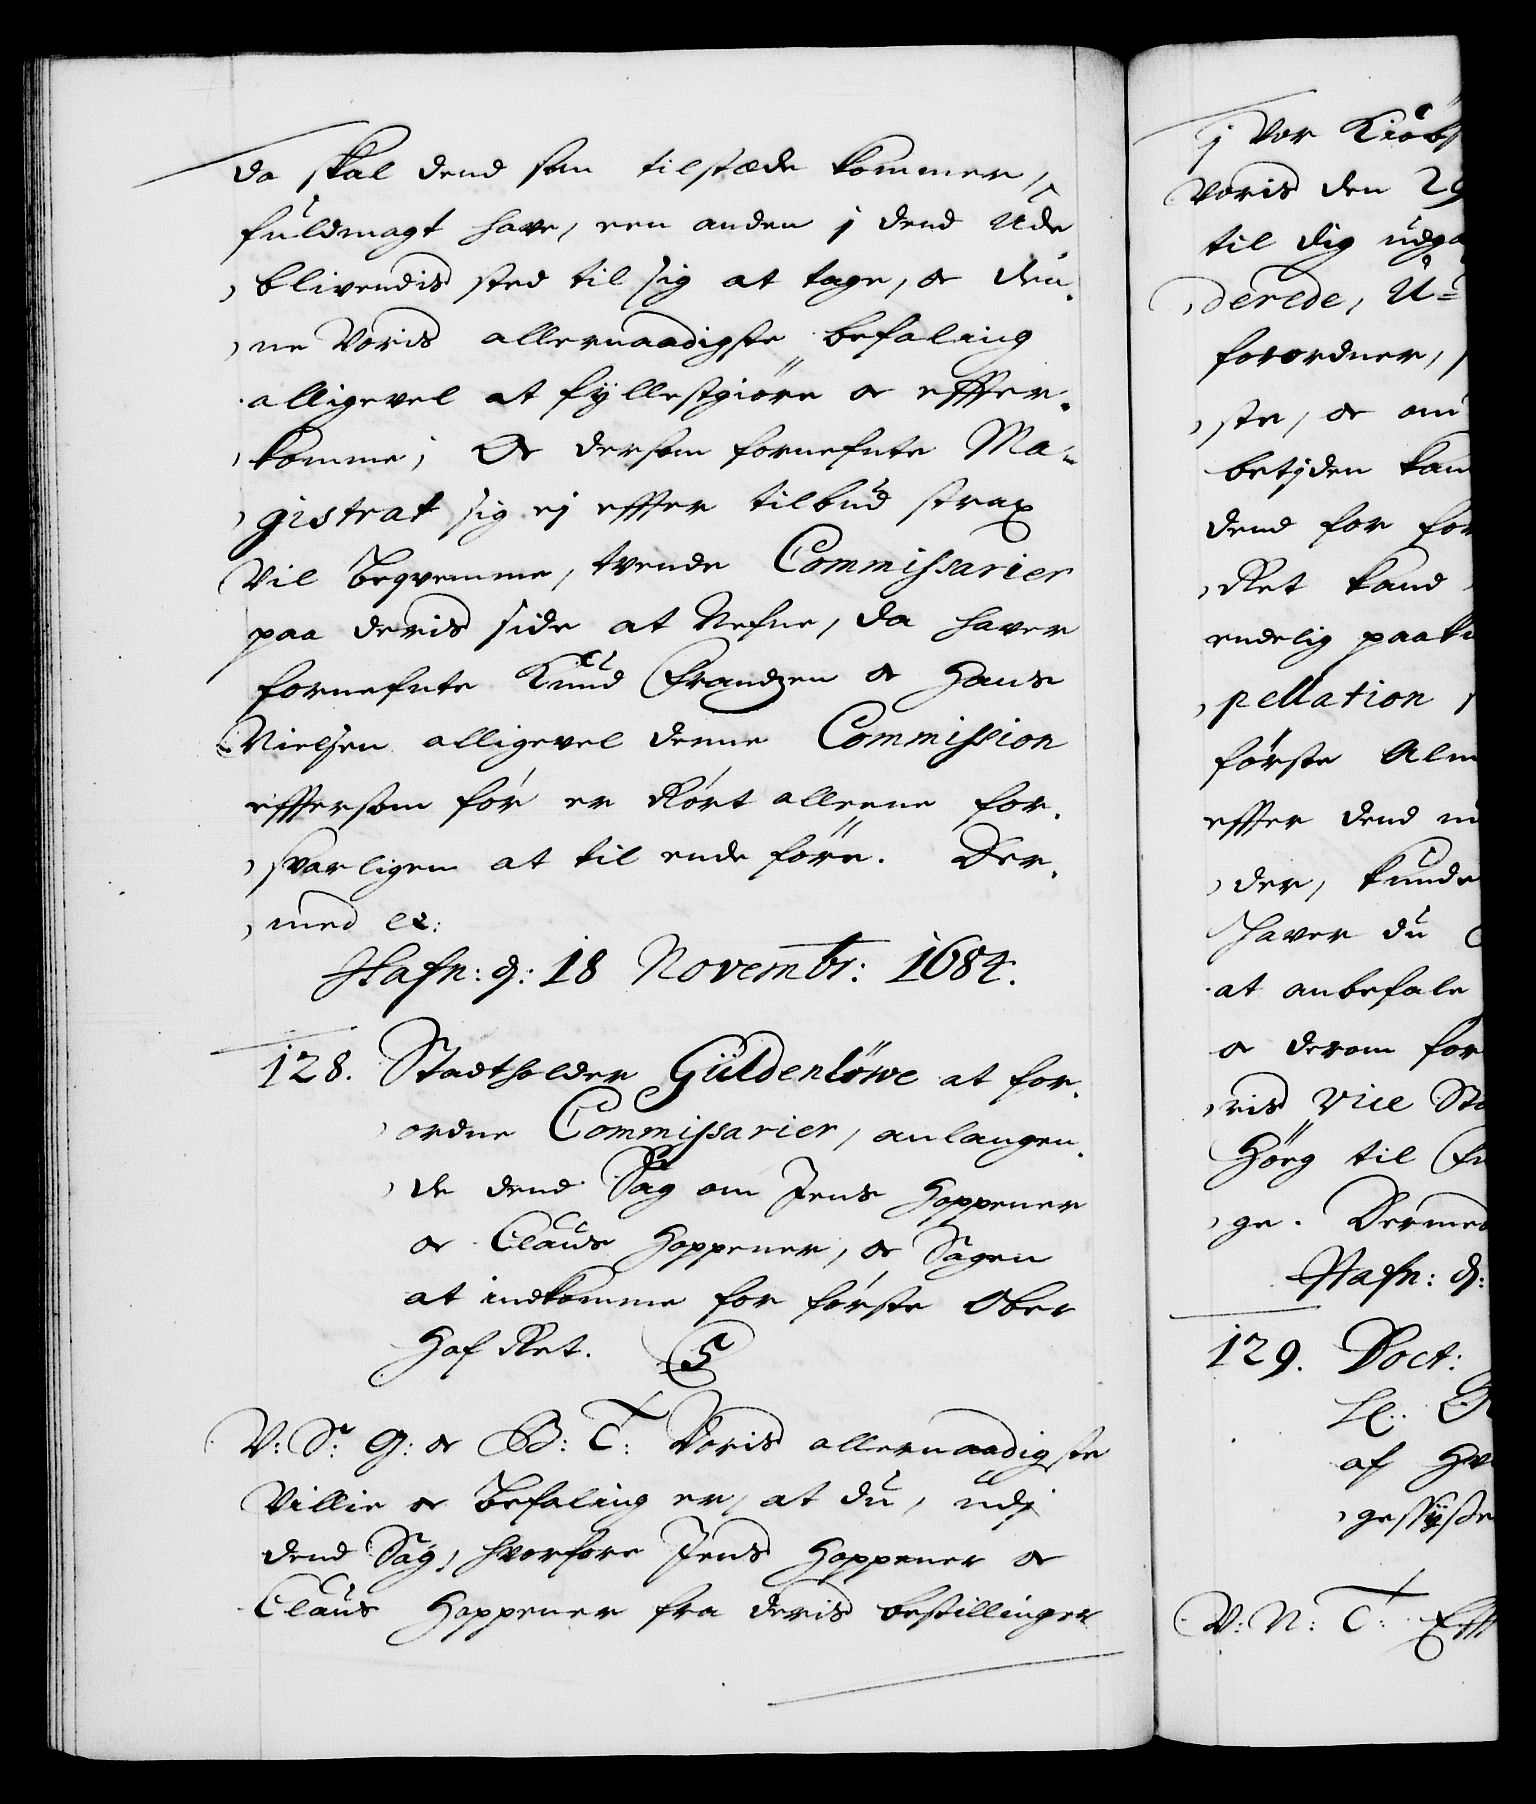 da skal dend som tilstæde kommer,
fuldmagt have, een anden j dend Ude
blivendis sted til sig at tage, oc den-
ne Voris allernaadigste befaling
alligevel at fyllestgiöre oc effter-
komme; Oc dersom fornefnte Ma-
gistrat sig ej effter tilbud strax
Vil beqvemme, tvende Commissarier
paa deris side at Nefne, da haver
fornefnte Knud Frandzen oc Hans
Nielsen alligevel denne Commission
efftersom för er Rört alleene for-
svarligen at til ende före. Der-
med etc:
Hafn: d: 18 Novembr: 1684.
128. Stadtholder Güldenlöwe at for-
ordne Commissarier, anlangen-
de dend Sag om Jens Hoppener
oc Claus Hoppener, oc Sagen
at indkomme for förste Ober
Hof Ret. 5
V: S: G: oc B: T: Voris allernaadigste
Villie oc befaling er, at du, udj
dend Sag, hvorfore Jens Hoppener oc
Claus Hoppener fra deris bestillinger
j Vor Kiöb
Voris den 29
til dig udga
derede, U-
forordner,
ste, oc om
betyden kan
dend for for
Ret kand
endelig paaki
pellation
förste Alm
effter dend
der, kunde
haver du
at anbefale
oc derom for
ris Vice Sta
Höeg til
ge. Dermed
Hafn: d:
129. Doct:
af
V: N: T: Eff